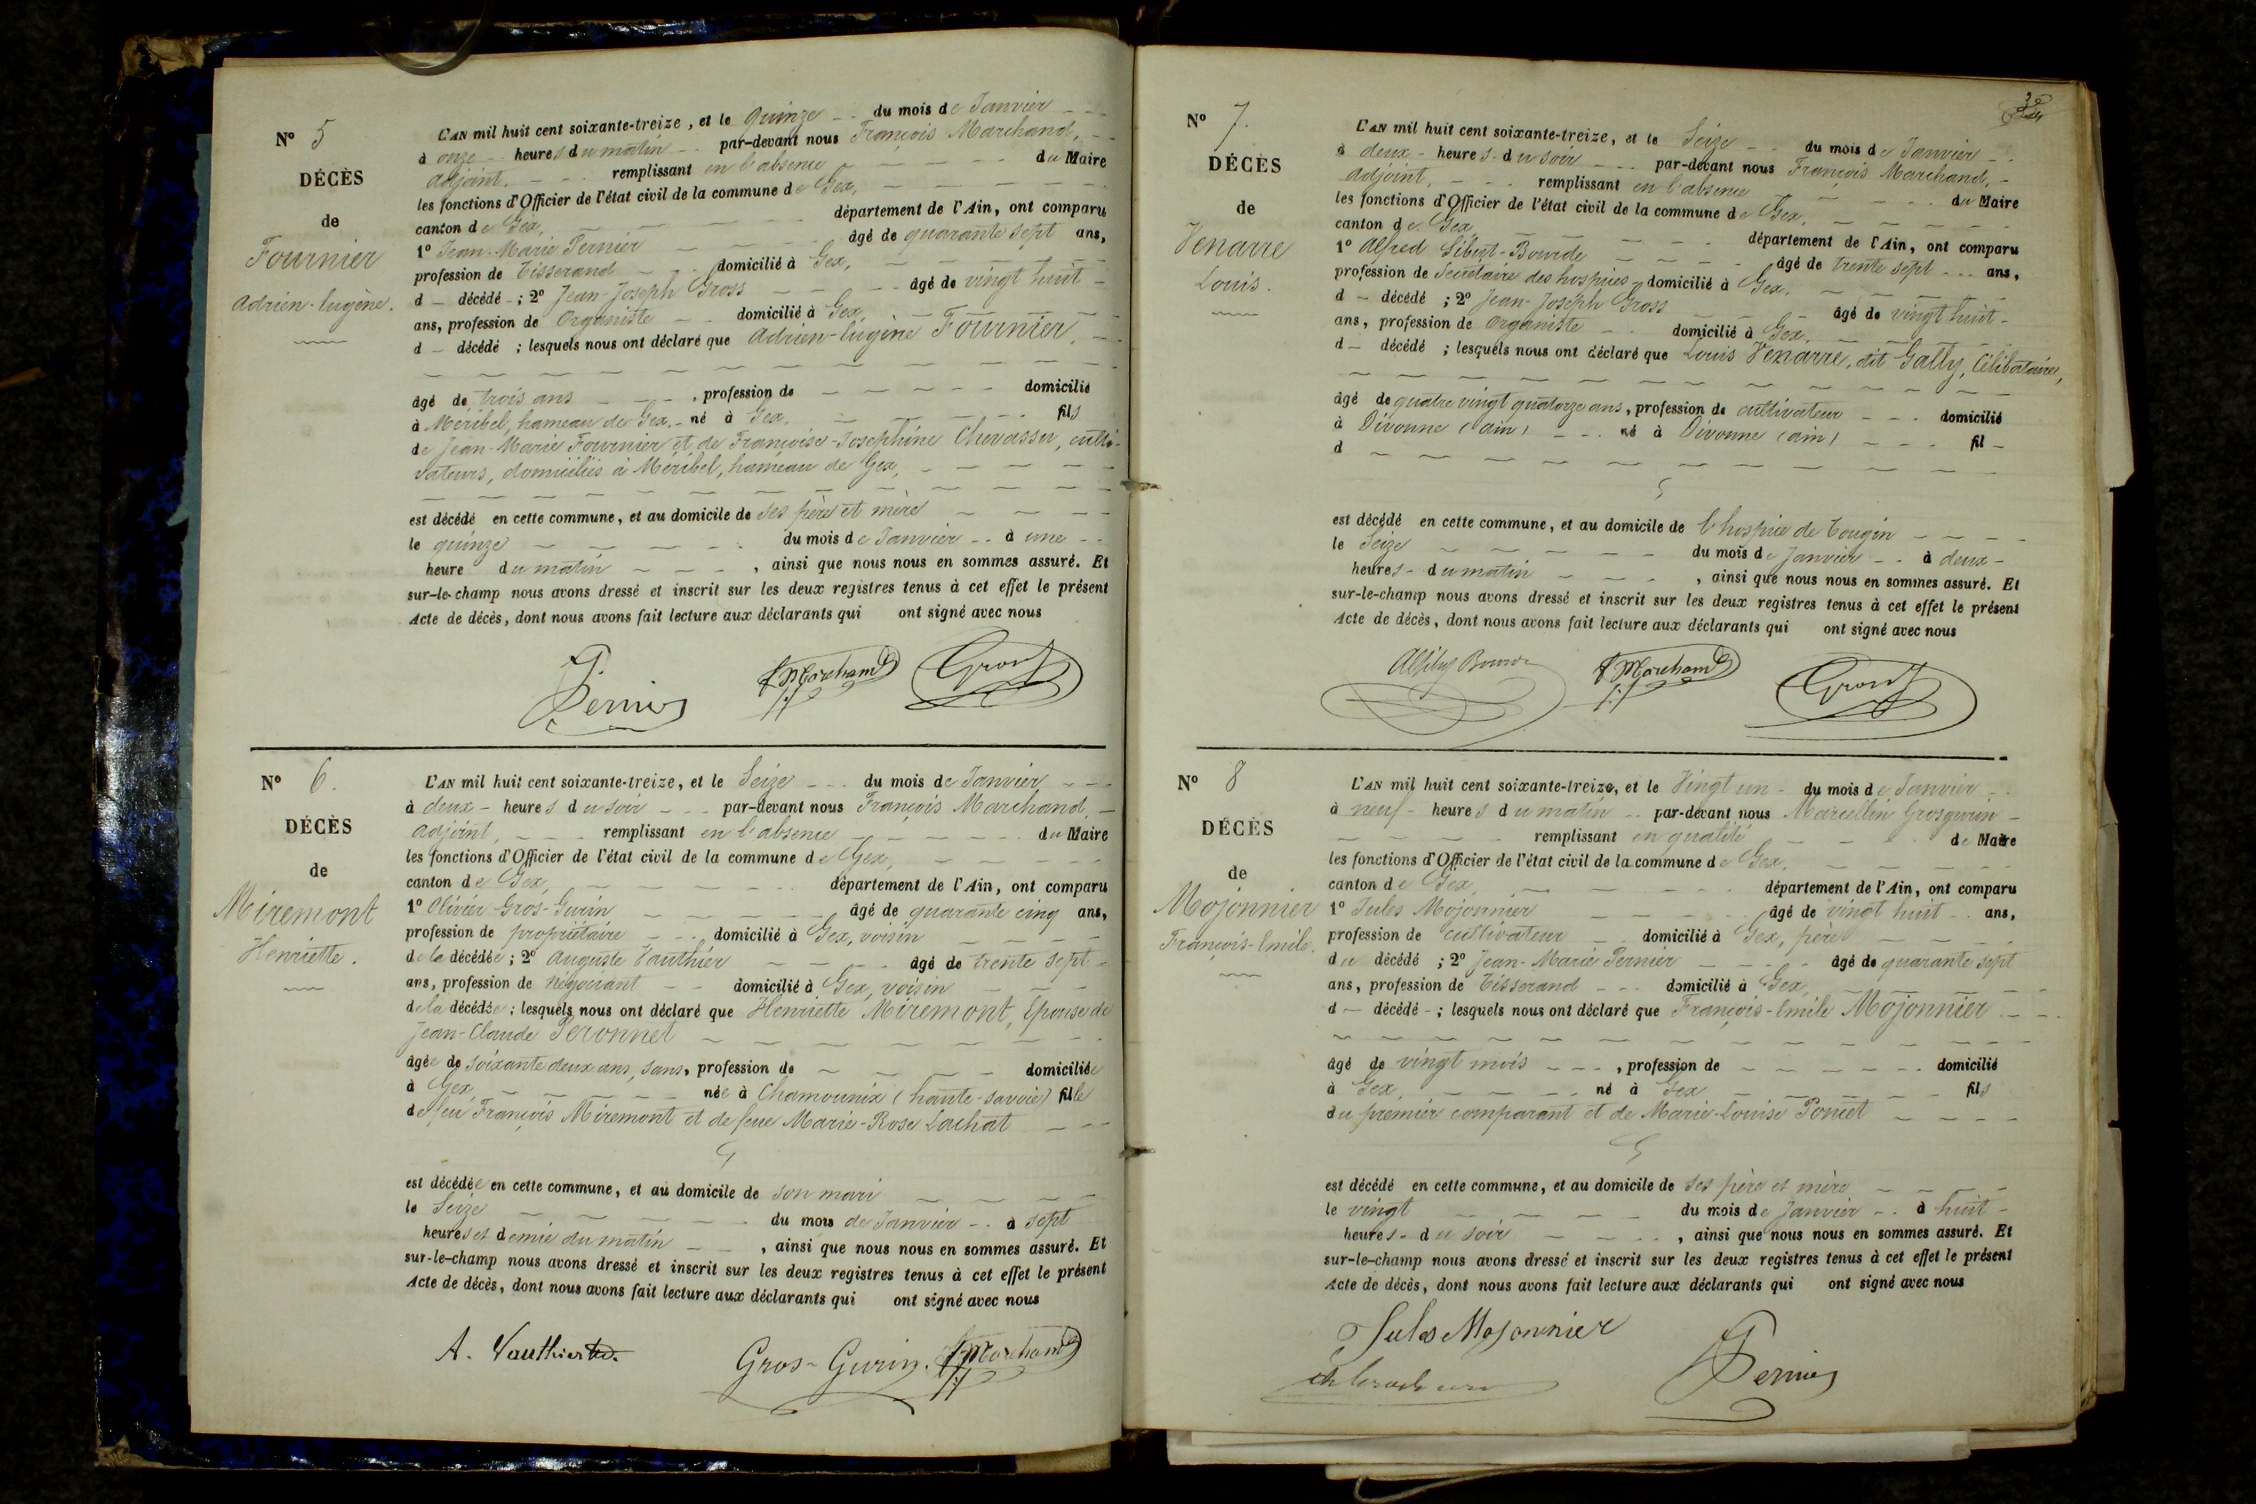 N° 5
DÉCÈS
de
Fournier
Adrien-Eugène.
L'AN mil huit cent soixante-treize, et le quinze du mois de Janvier
à onze heures du matin par-devant nous François Marchand,
adjoint. remplissant en l'absence du Maire
les fonctions d'Officier de l'état civil de la commune de Gex,
canton de Gex, département de l'Ain, ont comparu
1° Jean-Marie Pernier âgé de quarante sept ans,
profession de Tisserand domicilié à Gex,
d décédé ; 2° Jean-Joseph Gross âgé de vingt huit
ans, profession de Organiste domicilié à Gex
d décédé ; lesquels nous ont déclaré que Adrien-Eugène Fournier,
âgé de trois ans, profession de domicilié
à Méribel, hameau de Gex, né à Gex, fils
de Jean-Marie Fournier et de Françoise-Josephine Chevassu, culti-
vateurs, domiciliés à Méribel, hameau de Gex,
est décédé en cette commune, et au domicile de ses père et mère
le quinze du mois de Janvier à une
heure du matin, ainsi que nous nous en sommes assuré. Et
sur-le-champ nous avons dressé et inscrit sur les deux registres tenus à cet effet le présent
Acte de décès, dont nous avons fait lecture aux déclarants qui ont signé avec nous
Pernier F Marchand Gross
N° 6.
DÉCÈS
de
Miremont
Henriette.
L'AN mil huit cent soixante-treize, et le Seize du mois de Janvier
à deux heures du soir par-devant nous François Marchand,
adjoint, remplissant en l'absence du Maire
les fonctions d'Officier de l'état civil de la commune de Gex,
canton de Gex, département de l'Ain, ont comparu
1° Olivier Gros-Gurin âgé de quarante cinq ans,
profession de propriétaire domicilié à Gex, voisin
de la décédée ; 2° Auguste Vauthier âgé de trente sept
ans, profession de Négociant domicilié à Gex, voisin
de la décédée ; lesquels nous ont déclaré que Henriette Miremont, Epouse de
Jean-Claude Péronnet
âgée de soixante deux ans, sans, profession de domiciliée
à Gex, née à Chamounix (haute-savoie) fille
de feu François Miremont et de feue Marie-Rose Lachat
est décédée en cette commune, et au domicile de son mari
le Seize du mois de Janvier à sept
heures et demie du matin, ainsi que nous nous en sommes assuré. Et
sur-le-champ nous avons dressé et inscrit sur les deux registres tenus à cet effet le présent
Acte de décès, dont nous avons fait lecture aux déclarants qui ont signé avec nous
A. Vauthier Gros-Gurin. F Marchand
N° 7.
DÉCÈS
de
Venarre
Louis.
L'AN mil huit cent soixante-treize, et le Seize du mois de Janvier
à deux heures du soir par-devant nous François Marchand,
adjoint, remplissant en l'absence du Maire
les fonctions d'Officier de l'état civil de la commune de Gex,
canton de Gex département de l'Ain, ont comparu
1° Alfred Bourde âgé de trente sept ans,
profession de Secrétaire des hospices domicilié à Gex,
d décédé ; 2° Jean-Joseph Gross âgé de vingt huit
ans, profession de Organiste domicilié à Gex,
d décédé ; lesquels nous ont déclaré que Louis Venarre, dit Gally, Célibataire,
âgé de quatre vingt quatorze ans, profession de cultivateur domicilié
à Divonne (ain) né à Divonne (ain) fil
d
est décédé en cette commune, et au domicile de l'hospice de Tougin
le Seize du mois de Janvier à deux
heures du matin, ainsi que nous nous en sommes assuré. Et
sur-le-champ nous avons dressé et inscrit sur les deux registres tenus à cet effet le présent
Acte de décès, dont nous avons fait lecture aux déclarants qui ont signé avec nous
F Marchand Gross
N° 8
DÉCÈS
de
Mojonnier
François-Emile.
L'AN mil huit cent soixante-treize, et le Vingt un du mois de Janvier
à neuf heures du matin par-devant nous Marcellin Grosgurin
remplissant en qualité de Maire
les fonctions d'Officier de l'état civil de la commune de Gex,
canton de Gex département de l'Ain, ont comparu
1° Jules Mojonnier âgé de vingt huit ans,
profession de cultivateur domicilié à Gex, père
du décédé ; 2° Jean-Marie Pernier âgé de quarante sept
ans, profession de Tisserand domicilié à Gex,
d décédé ; lesquels nous ont déclaré que François-Emile Mojonnier
âgé de vingt mois, profession de domicilié
à Gex, né à Gex fils
du premier comparant et de Marie-Louise Poncet
est décédé en cette commune, et au domicile de ses père et mère
le vingt du mois de Janvier à huit
heures du soir, ainsi que nous nous en sommes assuré. Et
sur-le-champ nous avons dressé et inscrit sur les deux registres tenus à cet effet le présent
Acte de décès, dont nous avons fait lecture aux déclarants qui ont signé avec nous
Jules Mojonnier
Pernier